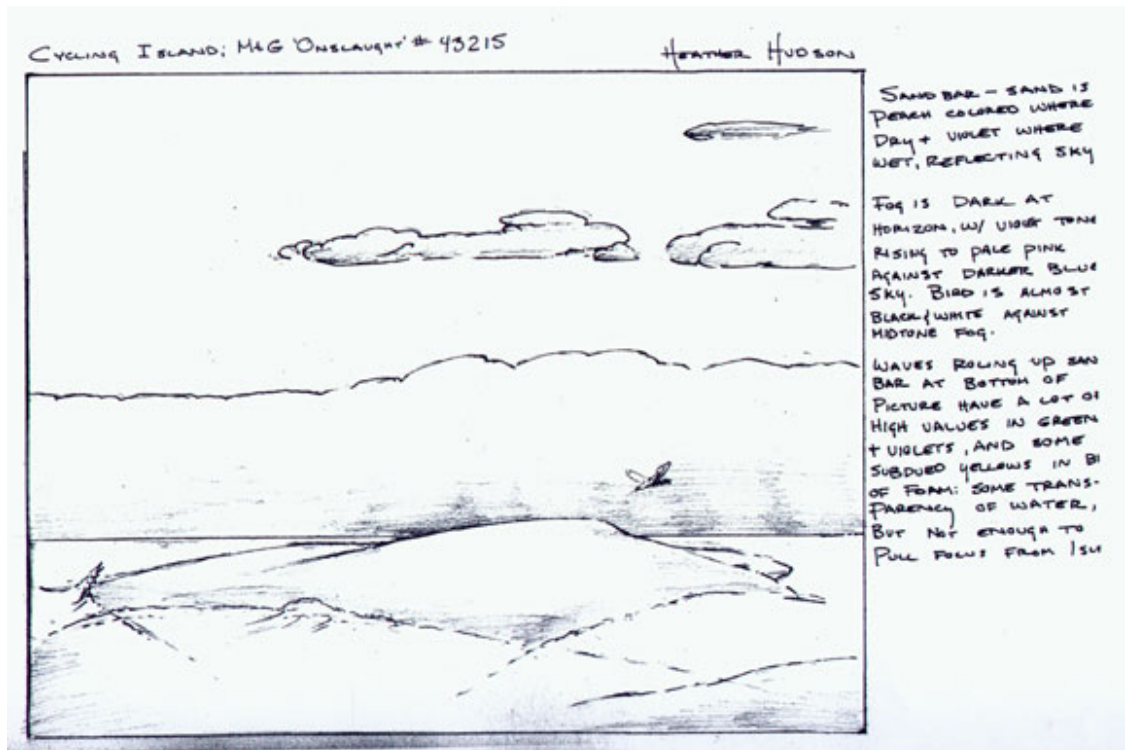 CYCLING ISLAND; M+G 'ONSLAUGHT' # 43215
HEATHER HUDSON
SANDBAR – SAND IS
PEACH COLORED WHERE
DRY + VIOLET WHERE
WET, REFLECTING SKY
FOG IS DARK AT
HORIZON, W/ VIOLET TONE
RISING TO PALE PINK
AGAINST DARKER BLUE
SKY. BIRD IS ALMOST
BLACK & WHITE AGAINST
MIDTONE FOG.
WAVES ROLING UP SAN
BAR AT BOTTOM OF
PICTURE HAVE A LOT OF
HIGH VALUES IN GREEN
+ VIOLETS, AND SOME
SUBDUED YELLOWS IN BI
OF FOAM: SOME TRANS-
PARENCY OF WATER,
BUT NOT ENOUGH TO
PULL FOCUS FROM ISL